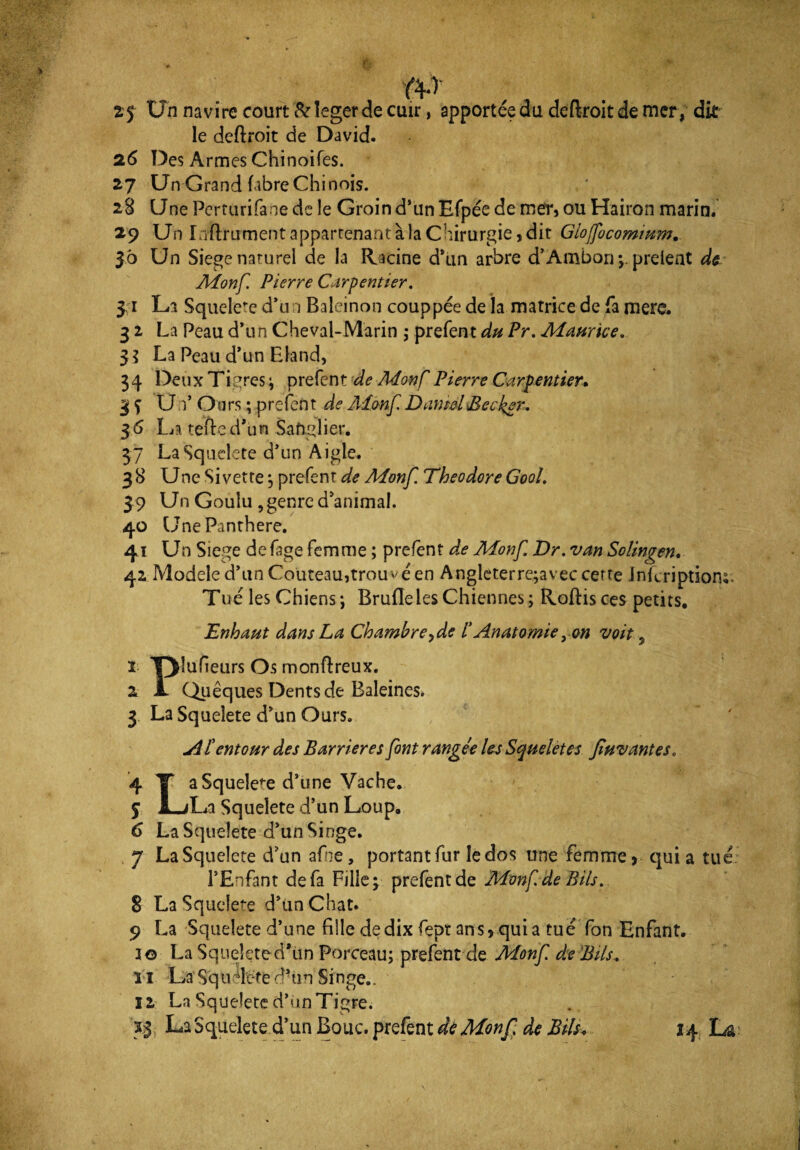 (4)
25 Un navire court & leger de cuir, apportée du deſtroit de mer, dit
le deſtroit de David.
26 Des Armes Chinoiſes.
27 Un Grand ſabre Chinois.
28 Une Perturiſane de le Groin d'un Eſpée de mer, ou Hairon marin.
29 Un Inſtrument appartenant à la Chirurgie, dit Gloſſocomium.
30 Un Siege naturel de la Racine d'un arbre d'Ambon; preſent de
Monſ. Pierre Carpentier.
31 La Squelete d'un Baleinon couppée de la matrice de ſa mere.
32 La Peau d'un Cheval-Marin; preſent du Pr. Maurice.
33 La Peau d'un Eland,
34 Deux Tigres; preſent de Monſ Pierre Carpentier.
35 Un' Ours; preſent de Monſ. Daniel Becker.
36 La teſte d'un Sanglier.
37 La Squelete d'un Aigle.
38 Une Sivette; preſent de Monſ. Theodore Gool.
39 Un Goulu, genre d'animal.
40 Une Panthere.
41 Un Siege de ſage femme; preſent de Monſ. Dr. van Solingen.
42 Modele d'un Couteau, trouvé en Angleterre; avec cette Inſcription;
Tué les Chiens; Bruſle les Chiennes; Roſtis ces petits.
Enhaut dans La Chambre, de l'Anatomie, on voit,
1 Pluſieurs Os monſtreux.
2 Quêques Dents de Baleines.
3 La Squelete d'un Ours.
A l'entour des Barrieres ſont rangée les Squelètes ſuivantes.
4 La Squelete d'une Vache.
5 La Squelete d'un Loup.
6 La Squelete d'un Singe.
7 La Squelete d'un aſne, portant ſur le dos une femme, qui a tué
l'Enfant de ſa Fille; preſent de Monſ. de Bils.
8 La Squelete d'un Chat.
9 La Squelete d'une fille de dix ſept ans, qui a tué ſon Enfant.
10 La Squelete d'un Porceau; preſent de Monſ. de Bils.
11 La Squelete d'un Singe.
12 La Squelete d'un Tigre.
13 La Squelete d'un Bouc. preſent de Monſ. de Bils.
14 La